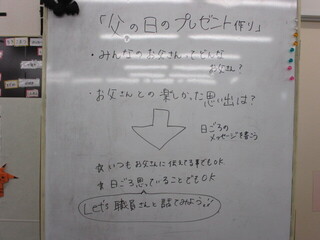 「父の日のプレゼント作り」
・みんなのお父さんってどんな
お父さん?
・お父さんとの楽しかった思い出は?
日ごろの
メッセージを書こう
☆いつもお父さんに伝えてる事でもOK
☆日ごろ思っていることでもOK
Let's 職員さんと話してみよう!!